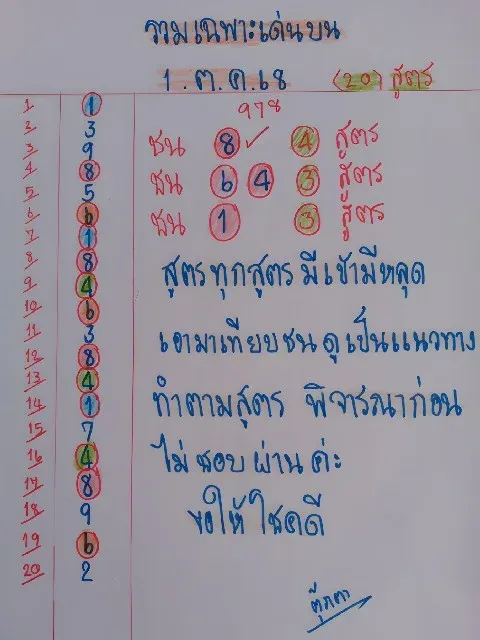 รวมเฉพาะเด่นบน
1.ต.ค.68 (20) สูตร
978
1 1
2 3
3 9
4 8
5 5
6 6
7 1
8 8
9 4
10 6
11 3
12 8
13 4
14 1
15 7
16 4
17 8
18 9
19 6
20 2
ชน 8 ✓ 4 สูตร
ชน 6 4 3 สูตร
ชน 1 3 สูตร
สูตรทุกสูตรมีเข้ามีหลุด
เอามาเทียบชนดูเป็นแนวทาง
ทำตามสูตร พิจารณาก่อน
ไม่ชอบผ่านค่ะ
ขอให้โชคดี
ตุ๊กตา